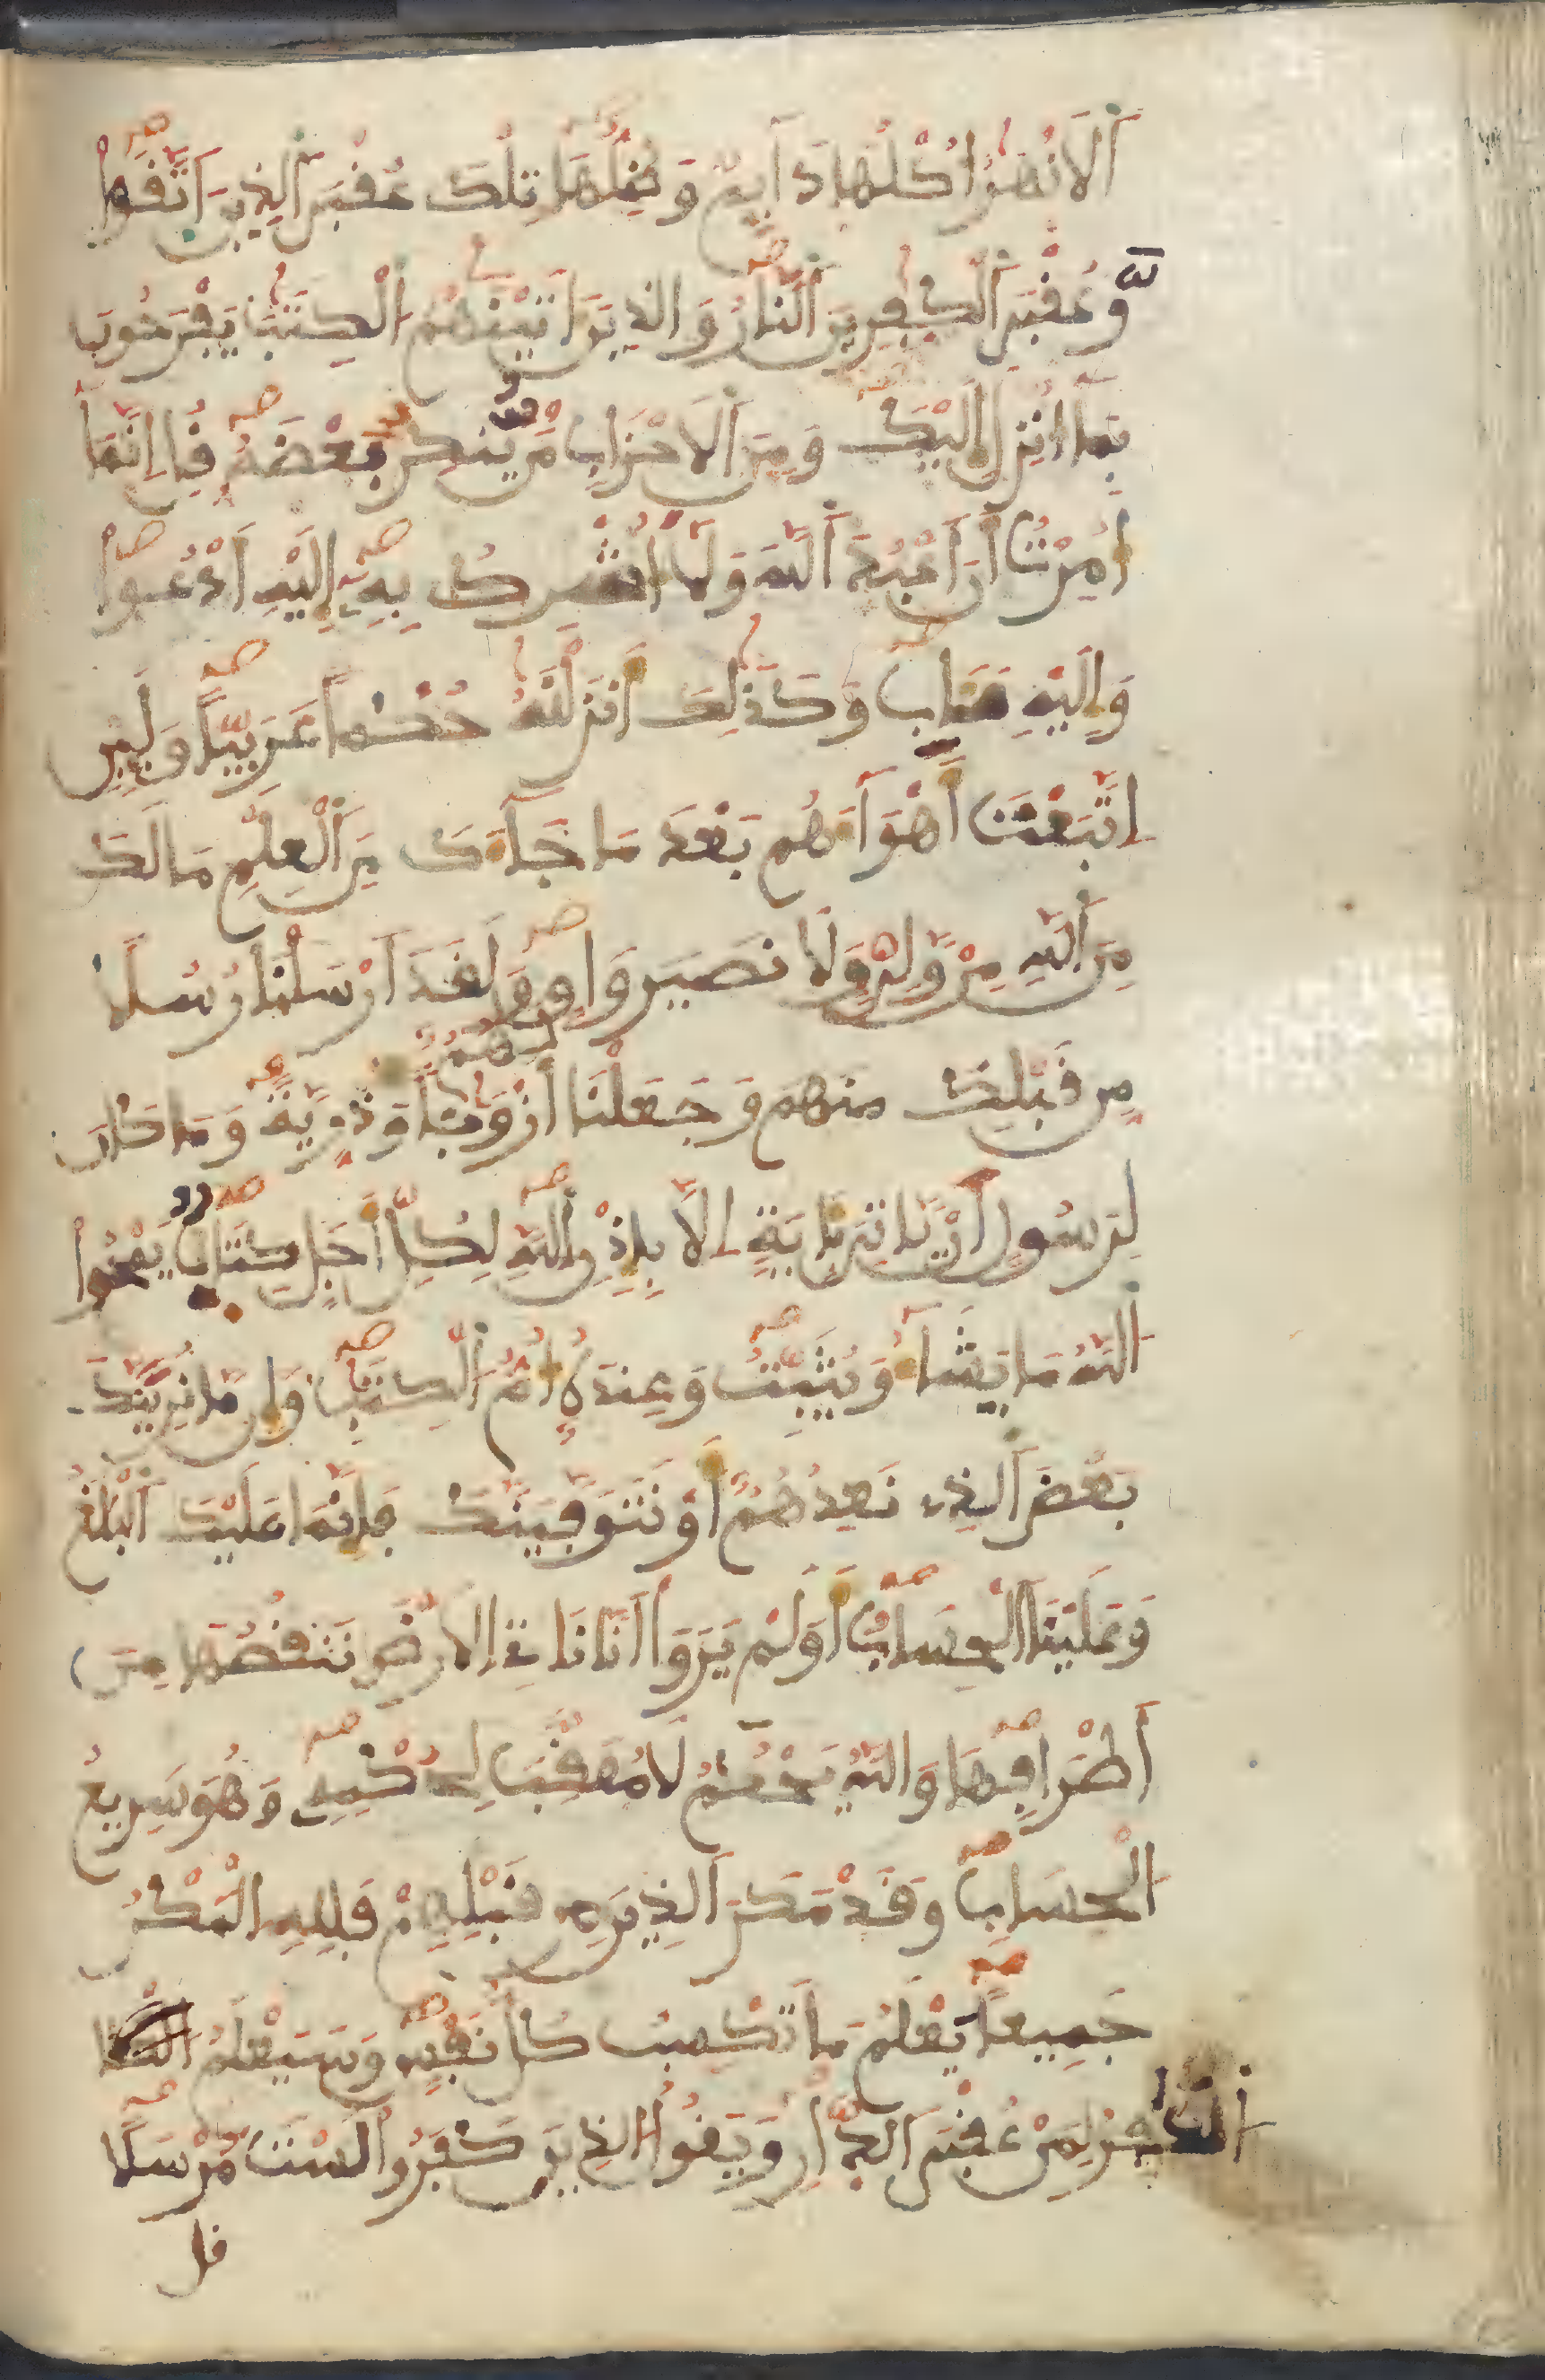 اَ۬لَانْهَٰرُ أُكْلُهَا دَآئِمٌ وَظِلُّهَا تِلْكَ عُقْبَى اَ۬لذِينَ اَ۪تَّقَواْ
وَّعُقْبَى اَ۬لْكٰفِرِينَ اَ۬لنَّارُ وَالذِينَ ءَاتَيْنَٰهُمُ اُ۬لْكِتَٰبَ يَفْرَحُونَ
بِمَآ أُنزِلَ إِلَيْكَ وَمِنَ اَ۬لَاحْزَابِ مَنْ يُّنكِرُ بَعْضَهُۥ قُلِ انَّمَآ
أُمِرْتُ أَنَ اَعْبُدَ اَ۬للَّهَ وَلَآ أُشْرِكَ بِهِۦٓ إِلَيْهِ أَدْعُواْ
وَإِلَيْهِ مَـَٔابِ وَكَذَٰلِكَ أَنزَلْنَٰهُ حُكْماً عَرَبِيّاً وَلَئِنِ
اِ۪تَّبَعْتَ أَهْوَآءَهُم بَعْدَ مَا جَآءَكَ مِنَ اَ۬لْعِلْمِ مَا لَكَ
مِنَ اَ۬للَّهِ مِنْ وَّلِيٍّ وَلَا نصير وَاقٍ وَلَقَدَ اَرْسَلْنَا رُسُلاً
مِّن قَبْلِكَ منهم وَجَعَلْنَا لَهُمُۥٓ أَزْوَٰجاً وَذُرِّيَّةً وَمَا كَانَ
لِرَسُولٍ اَنْ يَّاتِيَ بِـَٔايَةٍ اِلَّا بِإِذْنِ اِ۬للَّهِ لِكُلِّ أَجَلٍ كِتَابٌ يَمْحُواْ
اُ۬للَّهُ مَا يَشَآءُ وَيُثَبِّتُ وَعِندَهُۥٓ أُمُّ اُ۬لْكِتَٰبِ وَإِن مَّا نُرِيَنَّكَ
بَعْضَ اَ۬لذِے نَعِدُهُمُۥٓ أَوْ نَتَوَفَّيَنَّكَ فَإِنَّمَا عَلَيْكَ اَ۬لْبَلَٰغُ
وَعَلَيْنَا اَ۬لْحِسَابُ أَوَلَمْ يَرَوَاْ اَنَّا نَاتِے اِ۬لَارْضَ نَنقُصُهَا مِنَ
اَطْرَافِهَا وَاللَّهُ يَحْكُمُ لَا مُعَقِّبَ لِحُكْمِهِۦ وَهُوَ سَرِيعُ
اُ۬لْحِسَابِ وَقَدْ مَكَرَ اَ۬لذِينَ مِن قَبْلِهِمْ فَلِلهِ اِ۬لْمَكْرُ
جَمِيعاً يَعْلَمُ مَا تَكْسِبُ كُلُّ نَفْسٍ وَسَيَعْلَمُ
اُ۬لْكَٰفِرُ لِمَنْ عُقْبَى اَ۬لدّ۪ارِ وَيَقُولُ اُ۬لذِينَ كَفَرُواْ لَسْتَ مُرْسَلاً
قل